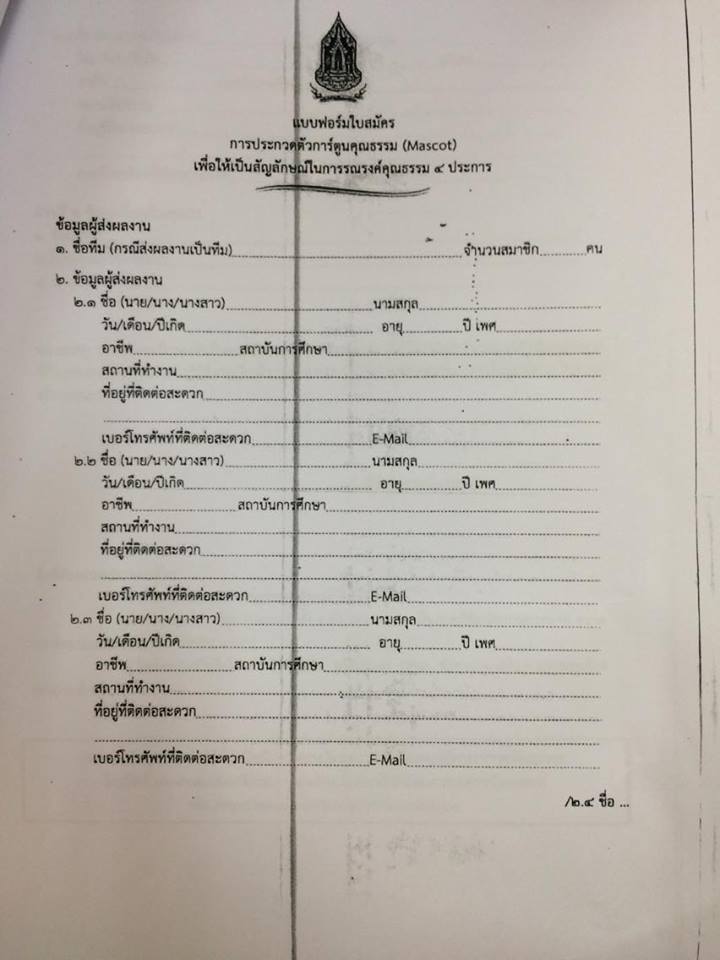 แบบฟอร์มใบสมัคร
การประกวดตัวการ์ตูนคุณธรรม (Mascot)
เพื่อให้เป็นสัญลักษณ์ในการรณรงค์คุณธรรม ๔ ประการ
ข้อมูลผู้ส่งผลงาน
๑. ชื่อทีม (กรณีส่งผลงานเป็นทีม) จำนวนสมาชิก คน
๒. ข้อมูลผู้ส่งผลงาน
๒.๑ ชื่อ (นาย/นาง/นางสาว) นามสกุล
วัน/เดือน/ปีเกิด อายุ ปี เพศ
อาชีพ สถาบันการศึกษา
สถานที่ทำงาน
ที่อยู่ที่ติดต่อสะดวก
เบอร์โทรศัพท์ที่ติดต่อสะดวก E-Mail
๒.๒ ชื่อ (นาย/นาง/นางสาว) นามสกุล
วัน/เดือน/ปีเกิด อายุ ปี เพศ
อาชีพ สถาบันการศึกษา
สถานที่ทำงาน
ที่อยู่ที่ติดต่อสะดวก
เบอร์โทรศัพท์ที่ติดต่อสะดวก E-Mail
๒.๓ ชื่อ (นาย/นาง/นางสาว) นามสกุล
วัน/เดือน/ปีเกิด อายุ ปี เพศ
อาชีพ สถาบันการศึกษา
สถานที่ทำงาน
ที่อยู่ที่ติดต่อสะดวก
เบอร์โทรศัพท์ที่ติดต่อสะดวก E-Mail
/๒.๔ ชื่อ ...